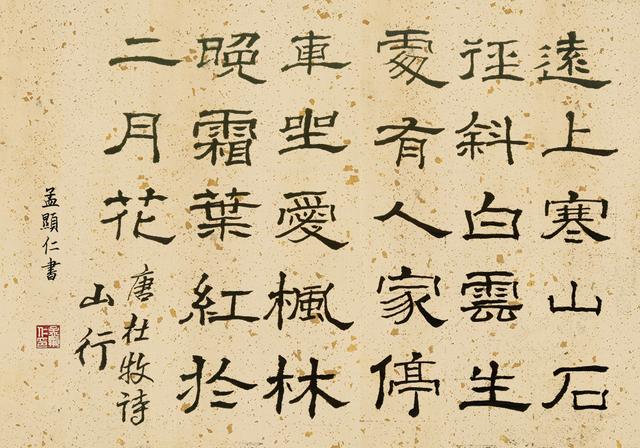 遠上寒山石
徑斜白雲生
處有人家停
車坐愛楓林
晚霜葉紅於
二月花
唐杜牧诗
山行
孟顯仁書